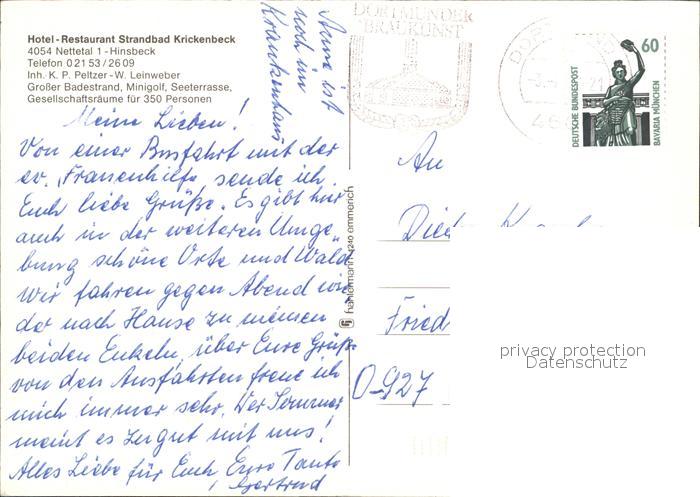 Hotel-Restaurant Strandbad Krickenbeck
4054 Nettetal 1-Hinsbeck
Telefon 0 21 53 / 26 09
Inh. K. P. Peltzer - W. Leinweber
Großer Badestrand, Minigolf, Seeterrasse,
Gesellschaftsräume für 350 Personen
Meine Lieben!
Von einer Busfahrt mit der
ev. Frauenhilfe sende ich
Euch liebe Grüße. Es gibt hier
auch in der weiteren Umge
bung schöne Orte und Wald.
Wir fahren gegen Abend wie
der nach Hause zu meinen
beiden Enkeln, über Eure Grüße
von den Ausfahrten freue ich
mich immer sehr. Der Sommer
meint es zu gut mit uns!
Alles Liebe für Euch Eure Tante
Gertrud
Anne ist
noch im
Krankenhaus
DORTMUNDER
BRAUKUNST
60
DEUTSCHE BUNDESPOST
BAVARIA MÜNCHEN
4240 emmerich
An
Fried
O-927
privacy protection
Datenschutz